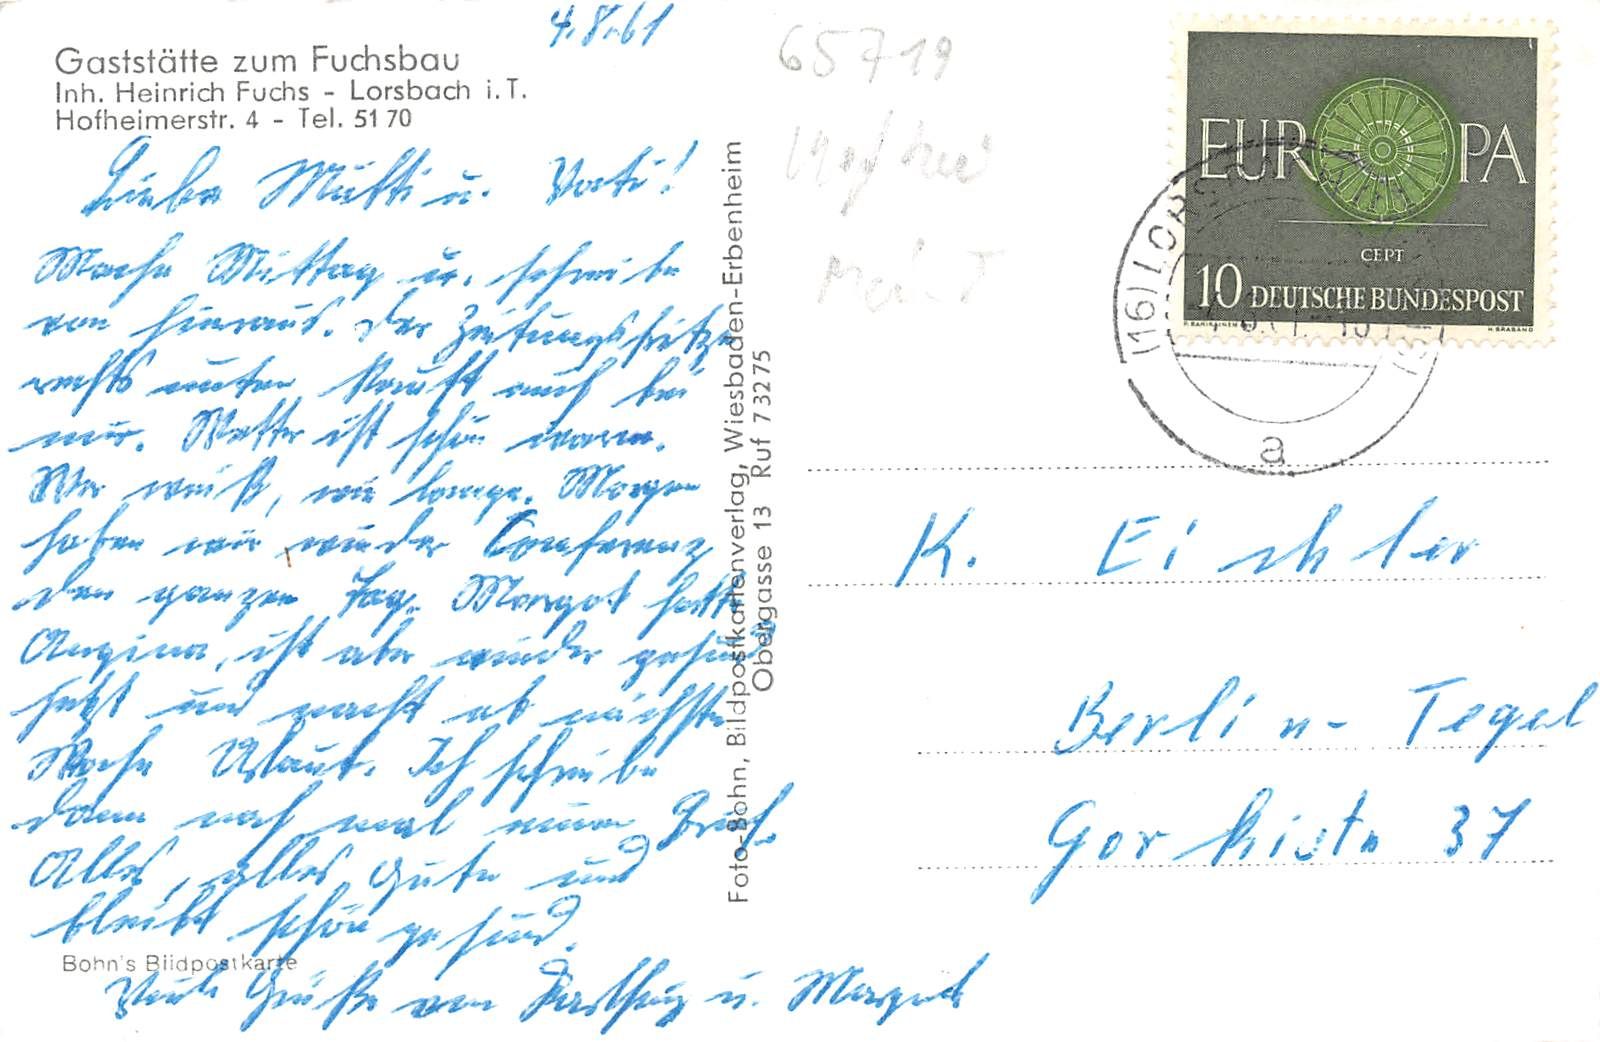 4.8.61
Gaststätte zum Fuchsbau
Inh. Heinrich Fuchs - Lorsbach i. T.
Hofheimerstr. 4 - Tel. 51 70
Liebe Mutti u. Vati!
Mache Mittag u. schreibe
von hieraus. Der Zeitungsfritze
rechts unten kauft auch bei
mir. Wetter ist schön warm.
Wer weiß, wie lange. Morgen
haben wir wieder Conferenz
den ganzen Tag. Margot hatte
Angina, ist aber wieder gesund
jetzt und macht ab nächste
Woche Urlaub. Ich schreibe
dann noch mal einen Brief.
Alles, alles Gute und
bleibt schön gesund.
Viele Grüße von Karlheinz u. Margot
Bohn's Bildpostkarte
Foto-Bohn, Bildpostkartenverlag, Wiesbaden-Erbenheim
Obergasse 13 Ruf 7 32 75
65719
EUROPA
CEPT
10 DEUTSCHE BUNDESPOST
H. BRABAND
(16) LORSBACH
a
K. Eichler
Berlin - Tegel
Gorkistr 37